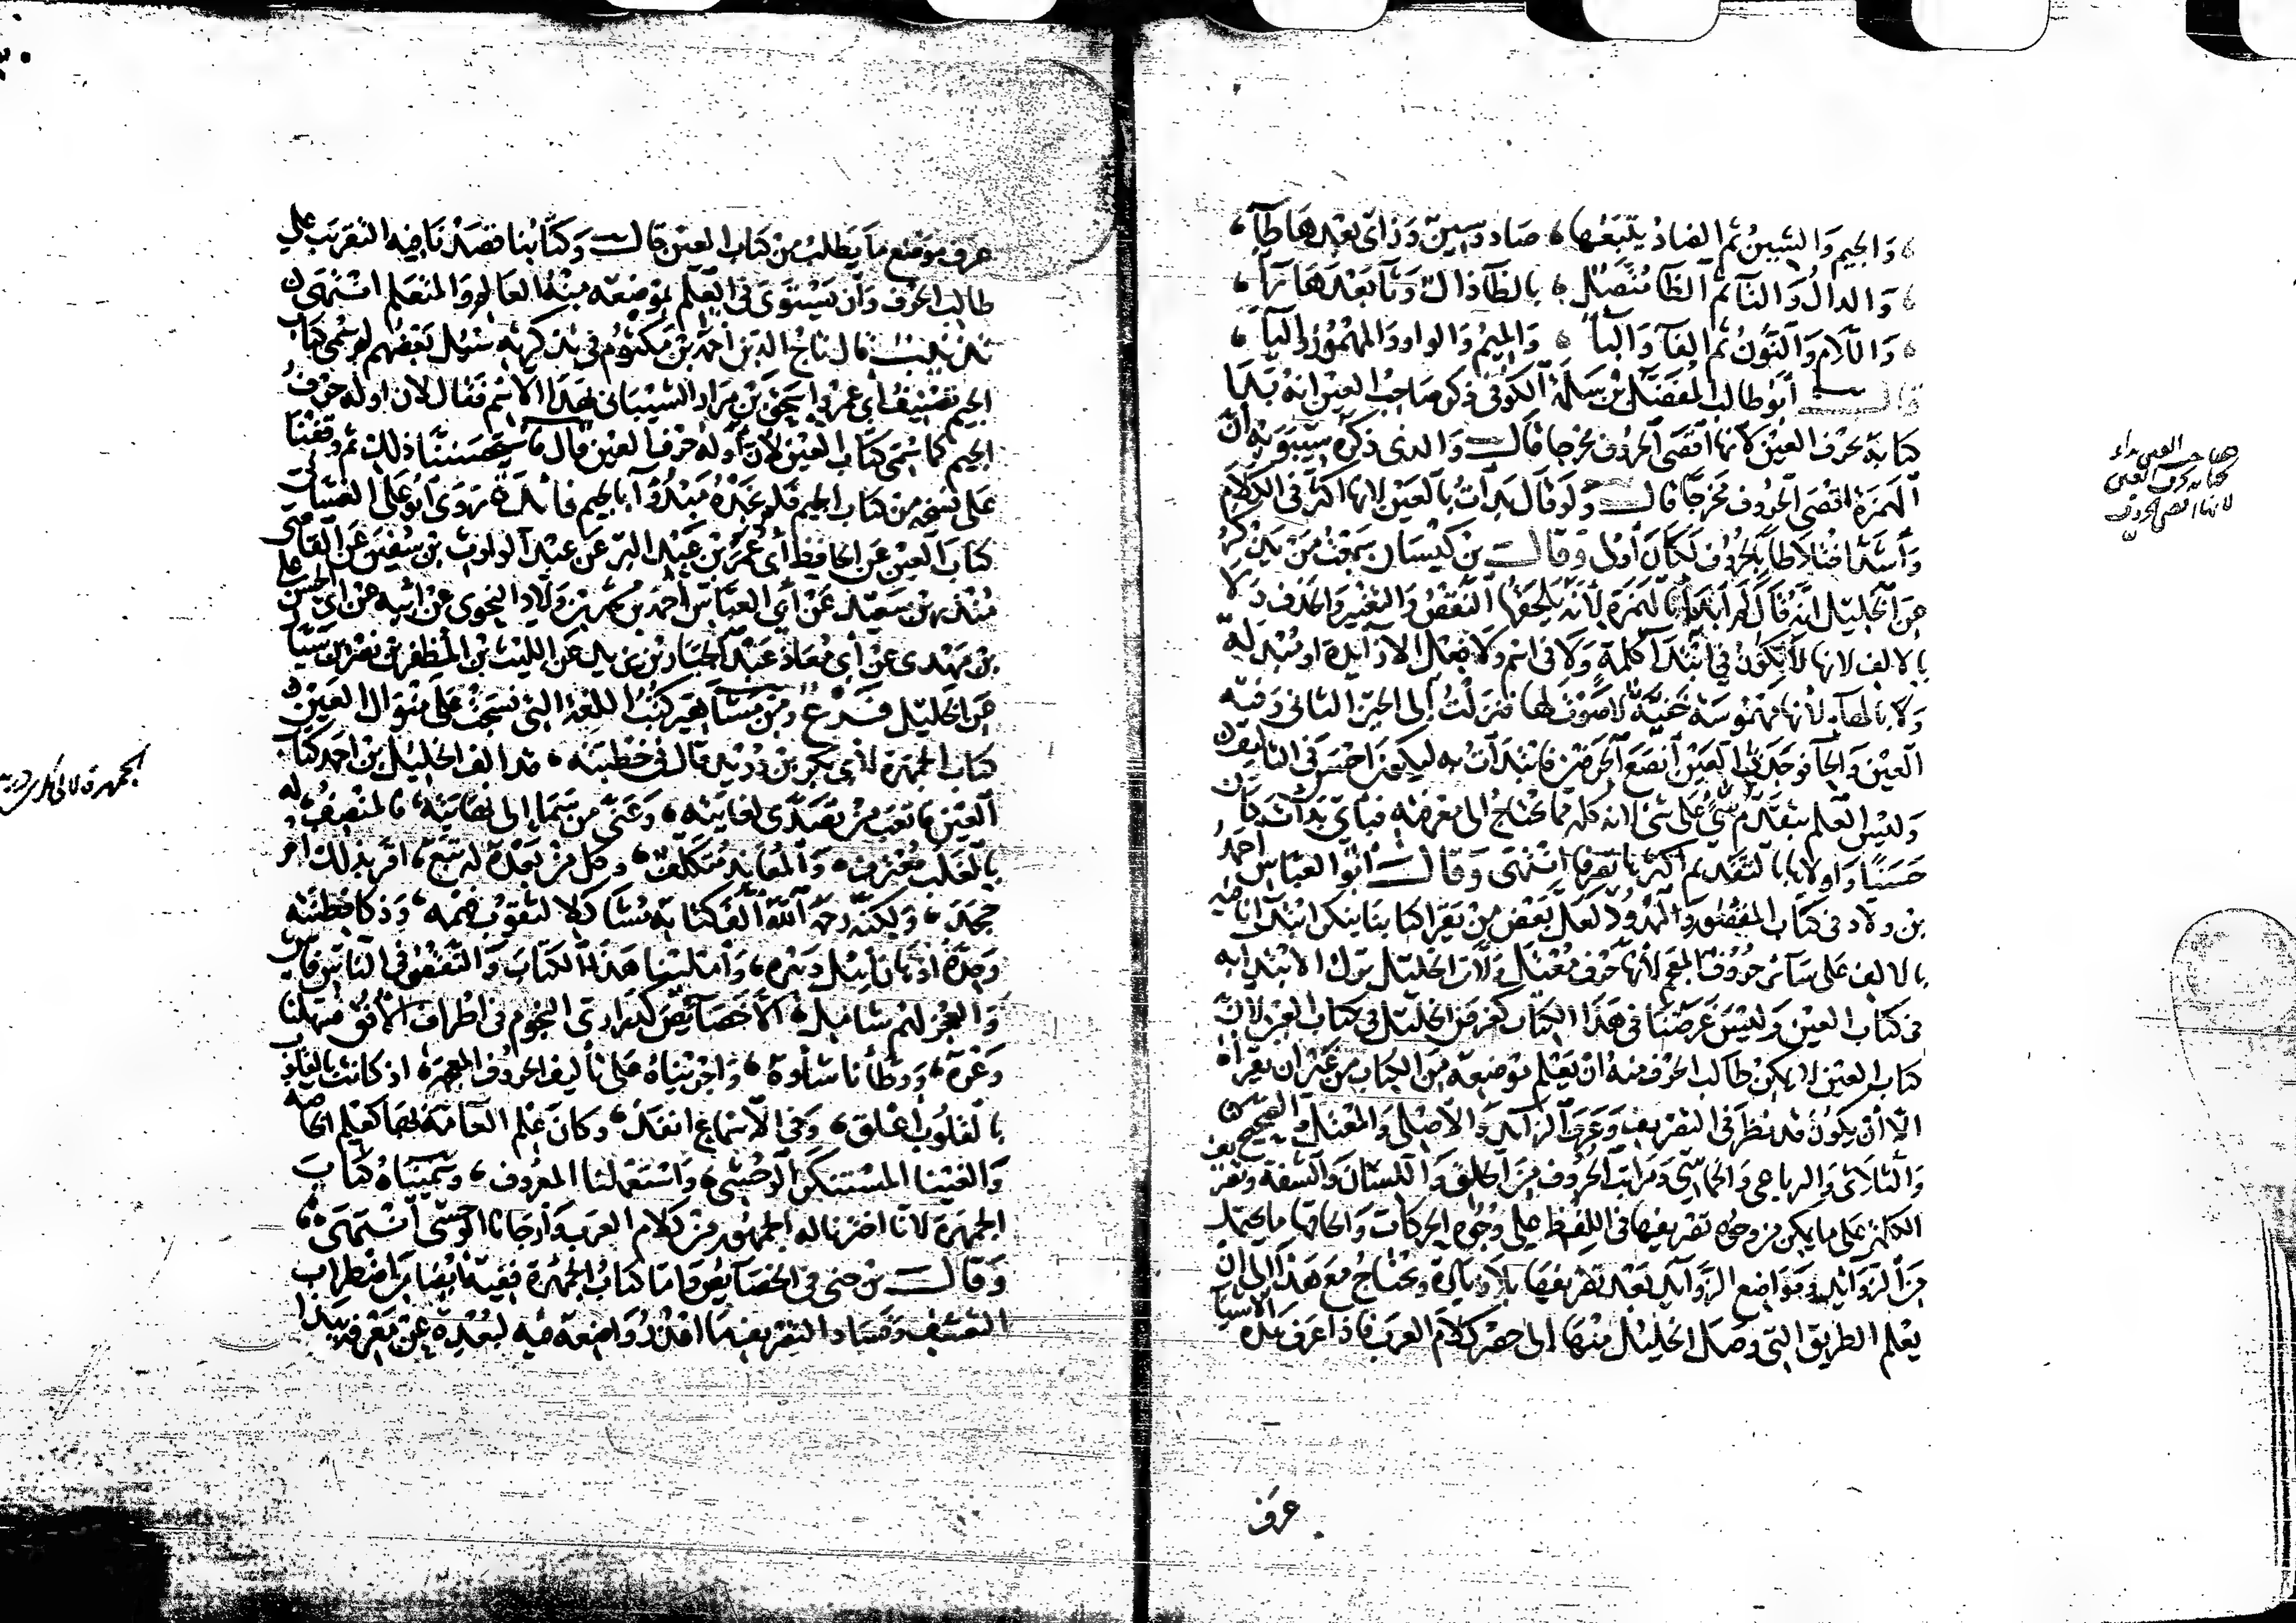 والجيم والشين ثم الضاد يتبعها ، صاد وسين وزاى بعدها طآ ،
والدال والتآ ثم الظا متصل ، بالظآ ذال وثآ بعدها رآ ،
واللام والنون ثم الفآ والبآ ، والميم والواو والمهموز واليآ ،
قال أبو طالب المفضل بن سلمة الكوفى ذكر صاحب العين انه بدا
كتابه بحرف العين لانها أقصى الحروف مخرجا قال والذى ذكره سيبويه أن
الهمزة اقصى الحروف مخرجا قال ولو قال بدأت بالعين لانها اكثر فى الكلام
وأشد اختلاطا بالحروف لكان أولى وقال بن كيسان سمعت من يذكر
عن الخليل انه قال لم ابدأ بالهمزة لانه يلحقها النقص والتغيير والحذف ولا
بالالف لانها لا يكون فى ابتدآ كلمة ولا فى اسم ولا فعل الا زآيدة او مبدلة
ولا بالهآ لانها مهموسة خفية لا صوت لها فنزلت إلى الحيز الثانى وفيه
العين والحآ فوجدت العين أنصع الحرفين فابتدأت به ليكون احسن فى التاليف
وليس العلم بتقدم شئ على شئ انه كله مما يحتاج الى معرفته فبأى بدأت كان
حسنا واولاها بالتقديم اكثرها تصرفا انتهى وقال أبو العباس احمد
بن ولاد فى كتاب المقصور والممدود لعل بعض من يقرا كتابنا ينكر ابتدآنا فيه
بالالف على سآئر حروف المعجم لانها حرف معتل ولان الخليل ترك الابتدآ به
فى كتاب العين وليس غرضنا فى هذا الكتاب كغرض الخليل فى كتاب العين لان
كتاب العين لا يمكن طالب الحرف منه ان يعلم موضعه من الكتاب من غير ان يقرأه
الا أن يكون قد نظر فى التصريف وعرف الزآيد والاصلى والمعتل والصحيح
والثلاثى والرباعى والخماسى ومراتب الحروف من الحلق واللسان والشفة وتصريف
الكلمة على ما يمكن من وجوه تصريفها فى اللفظ على وجوه الحركات والحاقها ما يحتمل
من الزوآئد ومواضع الزوآيد بعد تصريفها بلا زيادة ويحتاج مع هذا الى ان
يعلم الطريق التى وصل الخليل منها إلى حصر كلام العرب فاذا عرف هذه الاشيآ
عرف
صاحب العين بداء
كتابه بحرف العين
لانها اقصى الحروف
عرف موضع ما يطلب من كتاب العين قال وكتابنا قصدنا فيه التقريب على
طالب الحرف وأن يستوى فى العلم بموضعه منه العالم والمتعلم انتهى
تذنيب قال تاج الدين احمد بن مكتوم فى تذكرته سئل بعضهم لم سمى كتاب
الجيم تصنيف أبى عمرو اسحق بن مراد الشيبانى بهذا الاسم فقال لان اوله حرف
الجيم كما سمى كتاب العين لان أوله حرف العين قال فاستحسنا ذلك ثم وقفنا
على نسخة من كتاب الجيم فلم نجده مبدؤا بالجيم فائدة روى ابو على الغسانى
كتاب العين عن الحافظ أبى عمر بن عبد البر عن عبد الوارث بن سفين عن القاضى
منذر بن سعيد عن أبى العباس أحمد بن محمد بن ولاد النحوى عن ابيه عن ابى الحسن على
بن مهدى عن أبى معاذ عبد الجبار بن يزيد عن الليث بن المظفر بن نصر بن سيار
عن الخليل فرع ومن مشاهير كتب اللغة التى نسجت على منوال العين
كتاب الجمهرة لابى بكر بن دريد قال فى خطبته ، قد الف الخليل بن احمد كتاب
العين فاتعب من تصدى لغايته ، وعنى من سما إلى نهايته ، فالمنصف له
بالغلب معترف ، والمعاند متكلف ، وكل من بعده له تبع ، اقر بذلك ام
جحد ، ولكنه رحمه الله الف كتابه مشاكلا لثقوب فهمه ، وذكا فطنته
وحدة أذهان أهل دهره ، وأملينا هذا الكتاب والنقص فى الناس فاش
والعجز لهم شامل ، الا خصآئص كدرارى النجوم فى اطراف الافق فسهلنا
وعره ، ووطأنا شأوه ، واجريناه على تأليف الحروف المعجمة اذ كانت بالقلوب
بالقلوب اعلق ، وفى الاسماع انفذ ، وكان علم العامة بها كعلم الخاصة
والغينا المستنكر الوحشى ، واستعملنا المعروف ، وسميناه كتاب
الجمهرة لانا اخترنا له الجمهور من كلام العرب وأرجانا الوحشى انتهى ،
وقال بن جنى فى الخصآيص واما كتاب الجمهرة ففيه أيضا من اضطراب
التصنيف وفساد التصريف مما اعذر واضعه فيه لبعده عن معرفة هذا
الجمهرة لابى بكر بن دريد